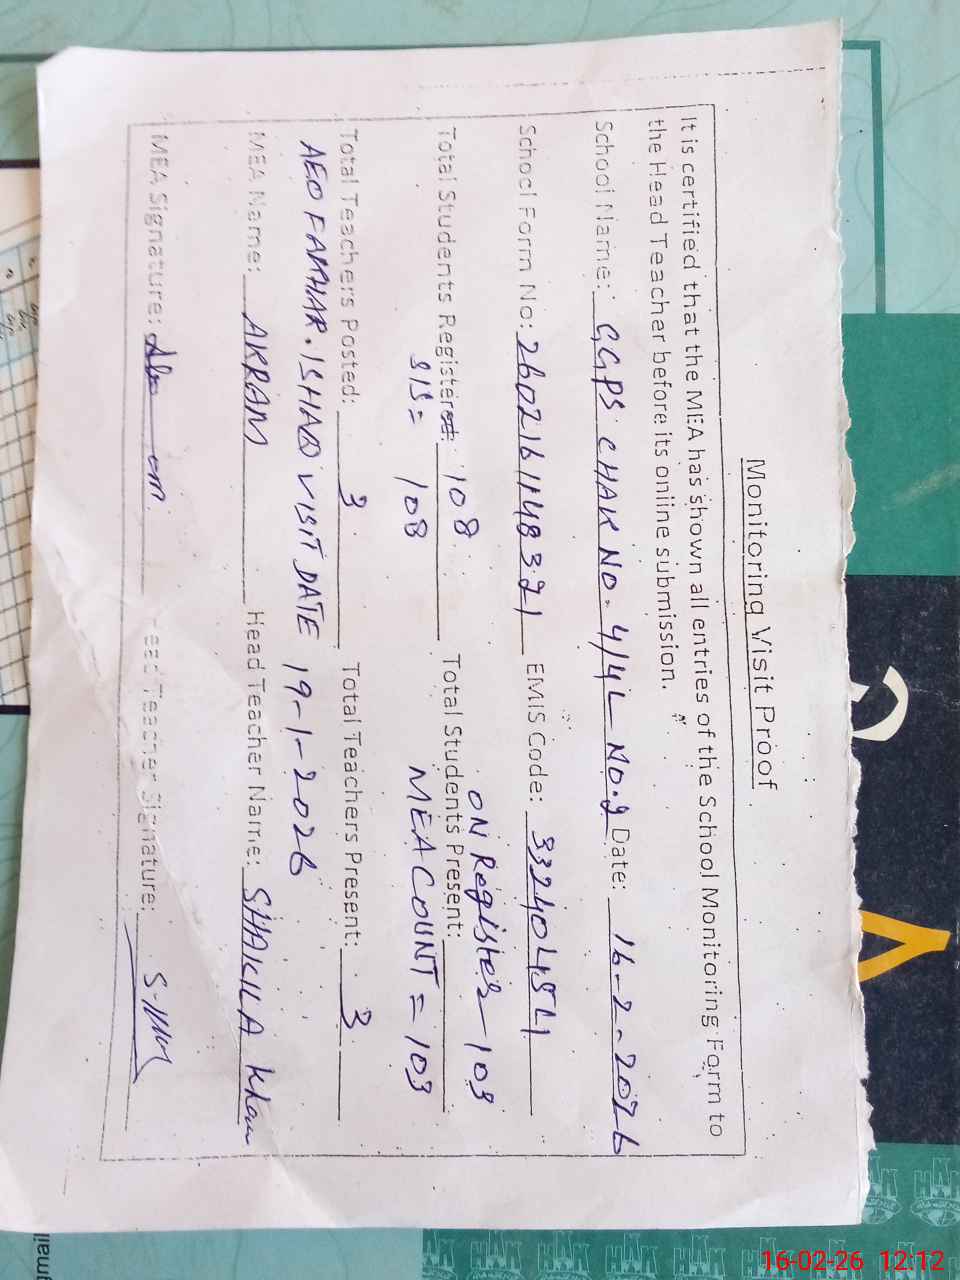 Monitoring Visit Proof
It is certified that the MEA has shown all entries of the School Monitoring Form to
the Head Teacher before its online submission.
School Name: GGPS CHAK NO. 4/4L NO.2 Date: 16-2-2026
School Form No: 26021611483 21 EMIS Code:
ON Register - 103
Total Students Registered: 108 Total Students Present:
SIS = 108 MEA COUNT = 103
Total Teachers Posted: 3 Total Teachers Present: 3
AEO FAKHAR. VISIT DATE 19-1-2026
MEA Name: AKRAM Head Teacher Name: SHAKILA Khan
MEA Signature: Head Teacher Signature:
16-02-26 12:12
gmail